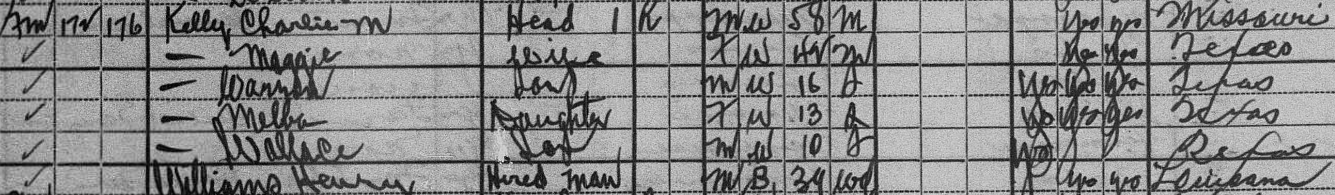 Fm 174 176 Kelly, Charlie M Head 1 R M W 58 M yes yes Missouri
✓ — Maggie Wife F W 44 M yes yes Texas
✓ — Son M W 16 S yes yes yes Texas
✓ — Melba Daughter F W 13 S yes yes yes Texas
✓ — Wallace Son M W 10 S yes Texas
✓ Williams Henry Hired man M B 34 wd yes yes Louisiana